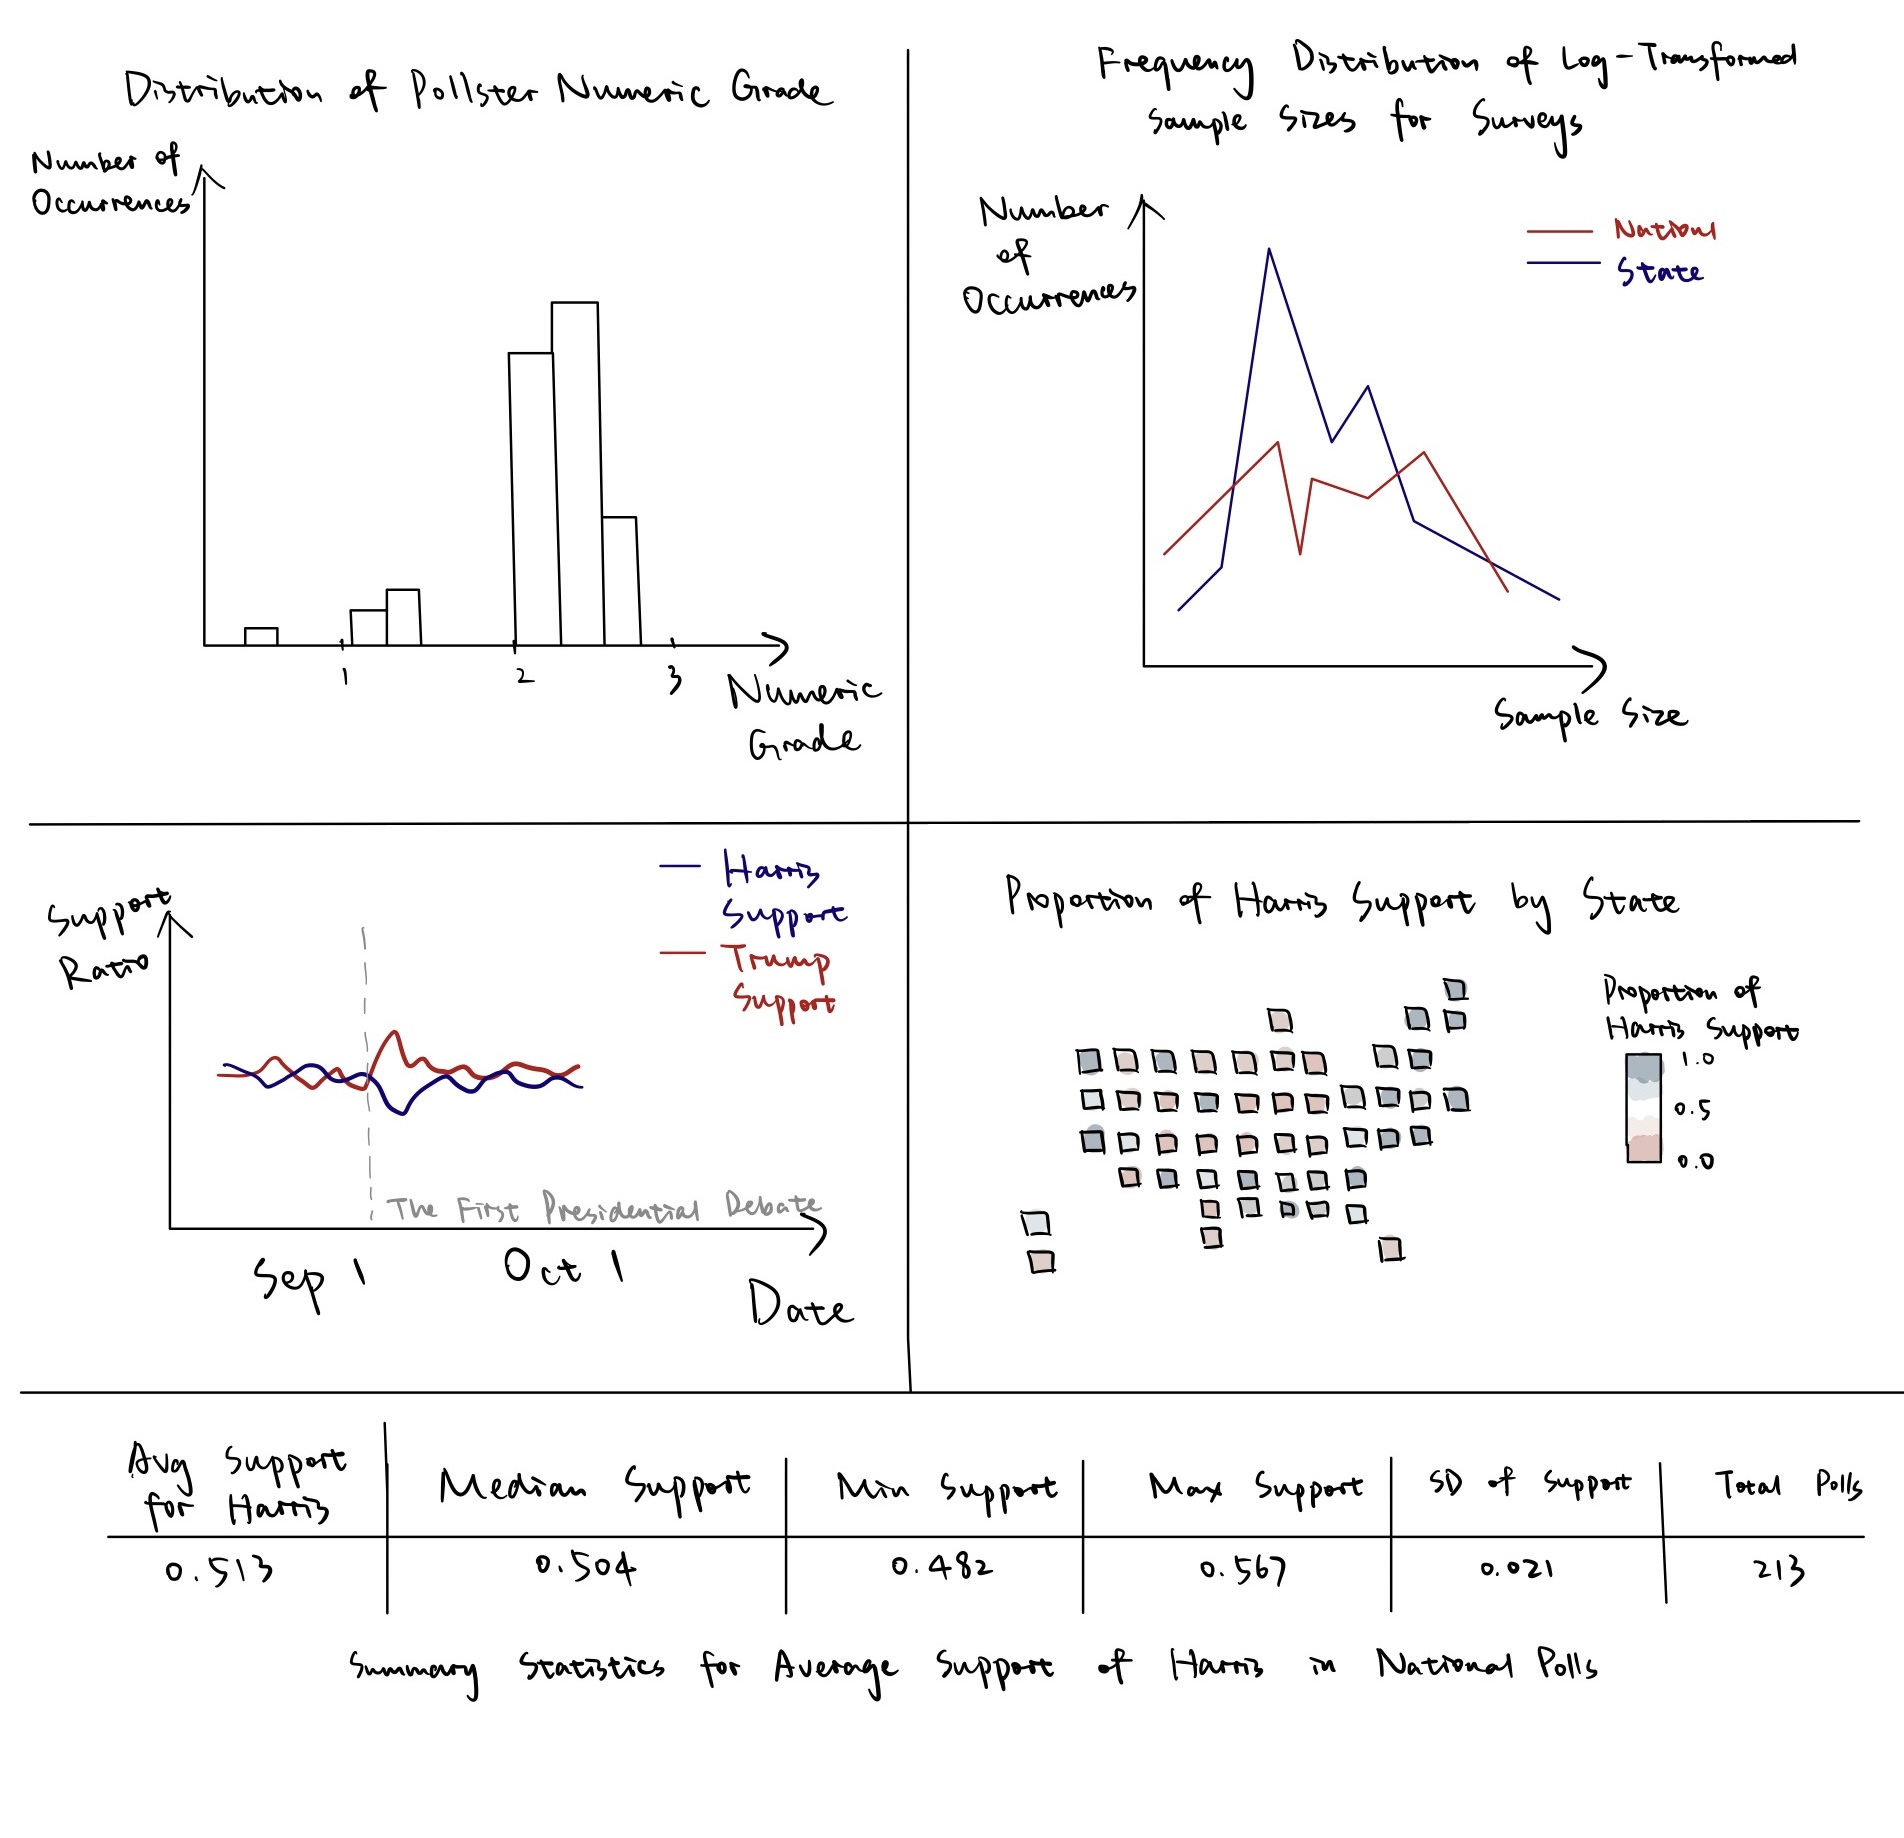 Distribution of Pollster Numeric Grade
Number of
Occurrences
1
2
3
Numeric
Grade
Frequency Distribution of Log-Transformed
Sample Sizes for Surveys
Number
of
Occurrences
Nationl
State
Sample Size
Harris
Support
Trump
Support
Support
Ratio
The First Presidential Debate
Sep 1
Oct 1
Date
Proportion of Harris Support by State
Proportion of
Harris Support
1.0
0.5
0.0
Avg Support
for Harris
Median Support
Min Support
Max Support
SD of Support
Total Polls
0.513
0.504
0.482
0.567
0.021
213
Summary Statistics for Average Support of Harris in National Polls